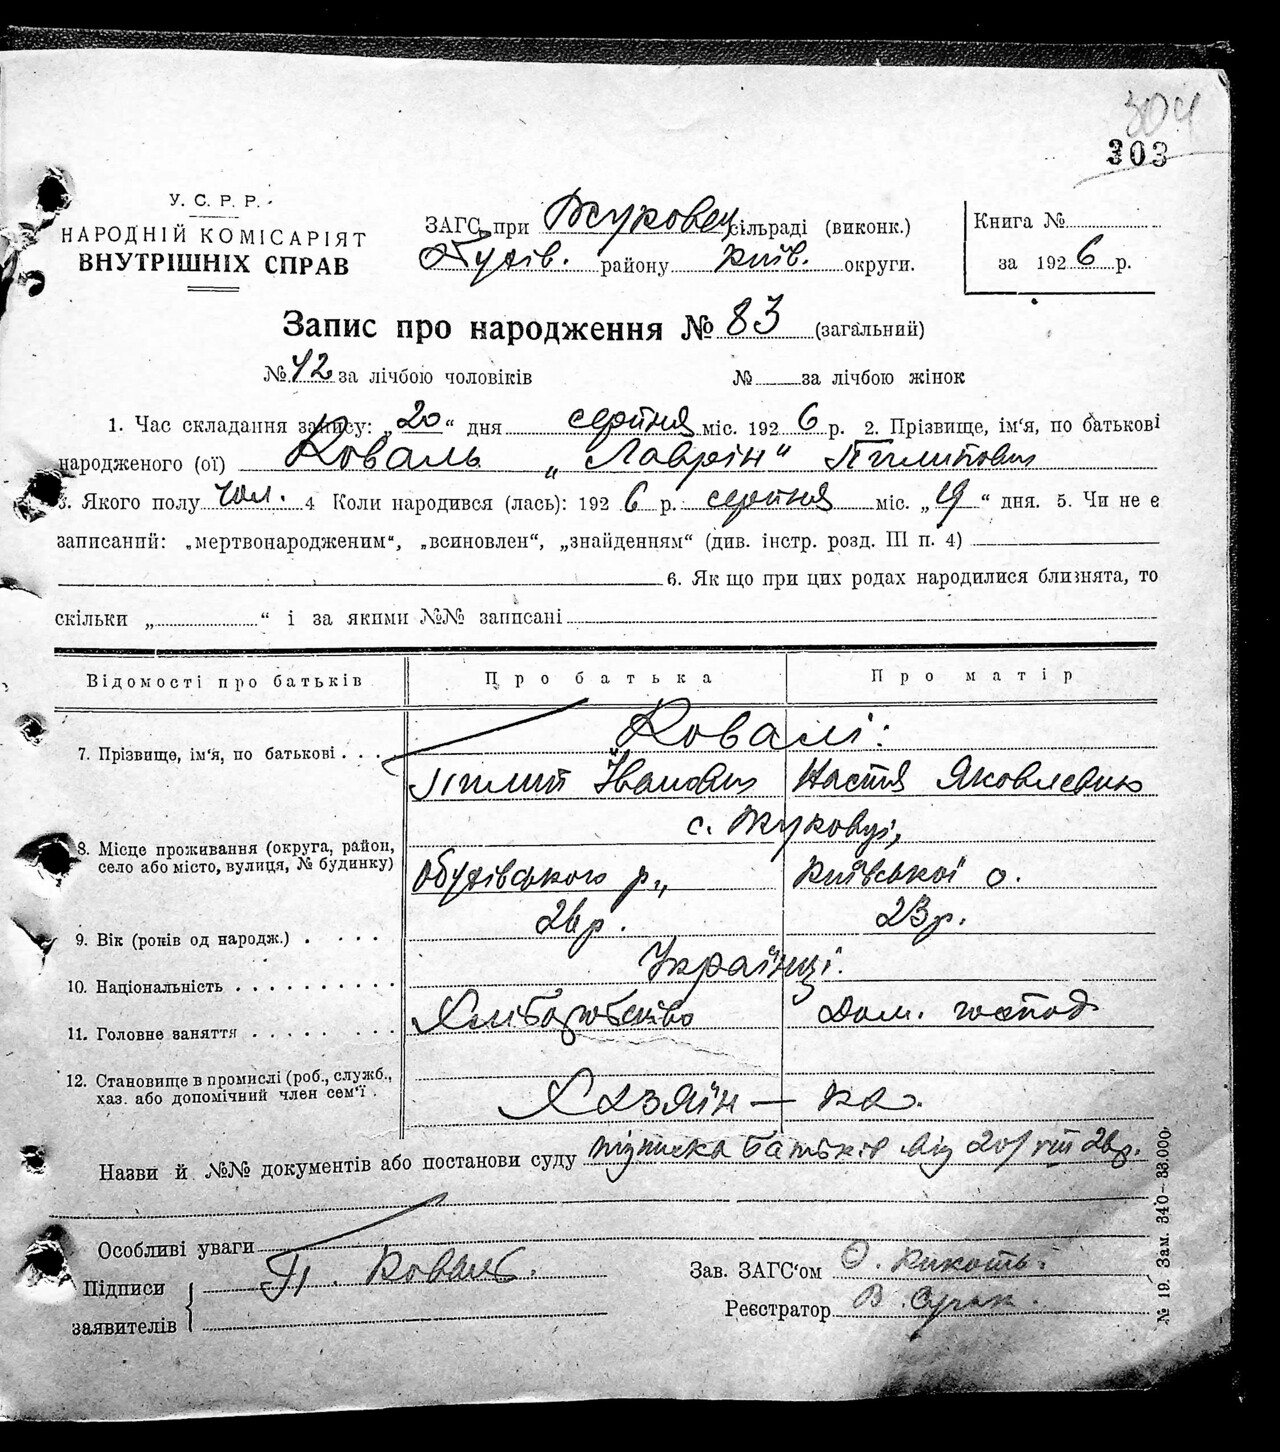 304
303
У. С. Р. Р.
НАРОДНІЙ КОМІСАРІЯТ
ВНУТРІШНІХ СПРАВ
ЗАГС при Жуковец. сільраді (виконк.)
району Київ. округи.
Книга №
за 1926 р.
Запис про народження № 83 (загальний)
№ 42 за лічбою чоловіків № за лічбою жінок
1. Час складання запису: „20“ дня серпня міс. 1926 р. 2. Прізвище, ім'я, по батькові
народженого (ої) Коваль „Лаврін“ Пилипович
3. Якого полу чол. 4 Коли народився (лась): 1926 р. серпня міс. „19“ дня. 5. Чи не є
записаний: „мертвонародженим“, „всиновлен“, „знайденням“ (див. інстр. розд. III п. 4)
6. Як що при цих родах народилися близнята, то
скільки „ “ і за якими №№ записані
Відомості про батьків Про батька Про матір
Ковалі:
7. Прізвище, ім'я, по батькові . . .
Пилип Іванович Настя Яковлевна
с. Жуковці,
8. Місце проживання (округа, район,
село або місто, вулиця, № будинку)
Обухівського р., Київської о.
9. Вік (років од народж.) . . . . . 26 р. 23 р.
Українці.
10. Національність . . . . . . . . . .
11. Головне заняття . . . . . . . . Хліборобство Дом. господ
12. Становище в промислі (роб., служб.,
хаз. або допомічний член сем'ї .
Хазяїн — ка.
Назви й №№ документів або постанови суду підписка батьків від 20/VIII 26р.
Особливі уваги
Підписи П. Коваль.
заявителів
Зав. ЗАГС'ом
Реєстратор В.
№ 19. Зам. 340—33.000.